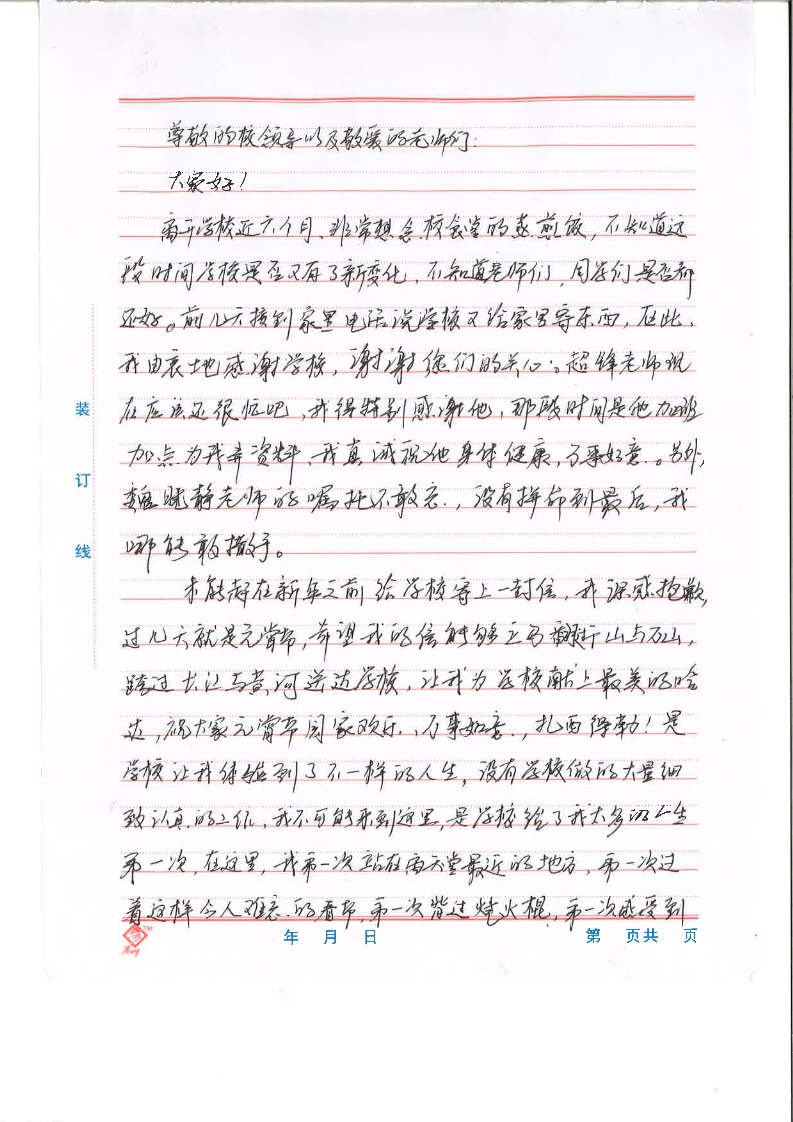 尊敬的校领导以及敬爱的老师们：
大家好！
离开学校近六个月、非常想念校食堂的蒸煎饺，不知道这
段时间学校是否又有了新变化，不知道老师们，同学们是否都
还好。前几天接到家里电话说学校又给家里寄东西，在此，
我由衷地感谢学校，谢谢你们的关心；超锋老师现
在应该还很忙吧，我得特别感谢他，那段时间是他加班
加点为我弄资料，我真诚祝他身体健康，万事如意。另外，
魏晓静老师的嘱托不敢忘，没有拼命到最后，我
哪能敢撒手。
未能赶在新年之前给学校寄上一封信，我深感抱歉，
过几天就是元宵节，希望我的信能够立马翻千山与万山，
跨过长江与黄河送达学校，让我为学校献上最美的哈
达，祝大家元宵节阖家欢乐、万事如意，扎西得勒！是
学校让我体验到了不一样的人生，没有学校做的大量细
致认真的工作，我不可能来到这里，是学校给了我太多的人生
第一次，在这里，我第一次站在离天堂最近的地方，第一次过
着这样令人难忘的春节，第一次背过烧火棍，第一次感受到
装
订
线
年 月 日
第 页共 页